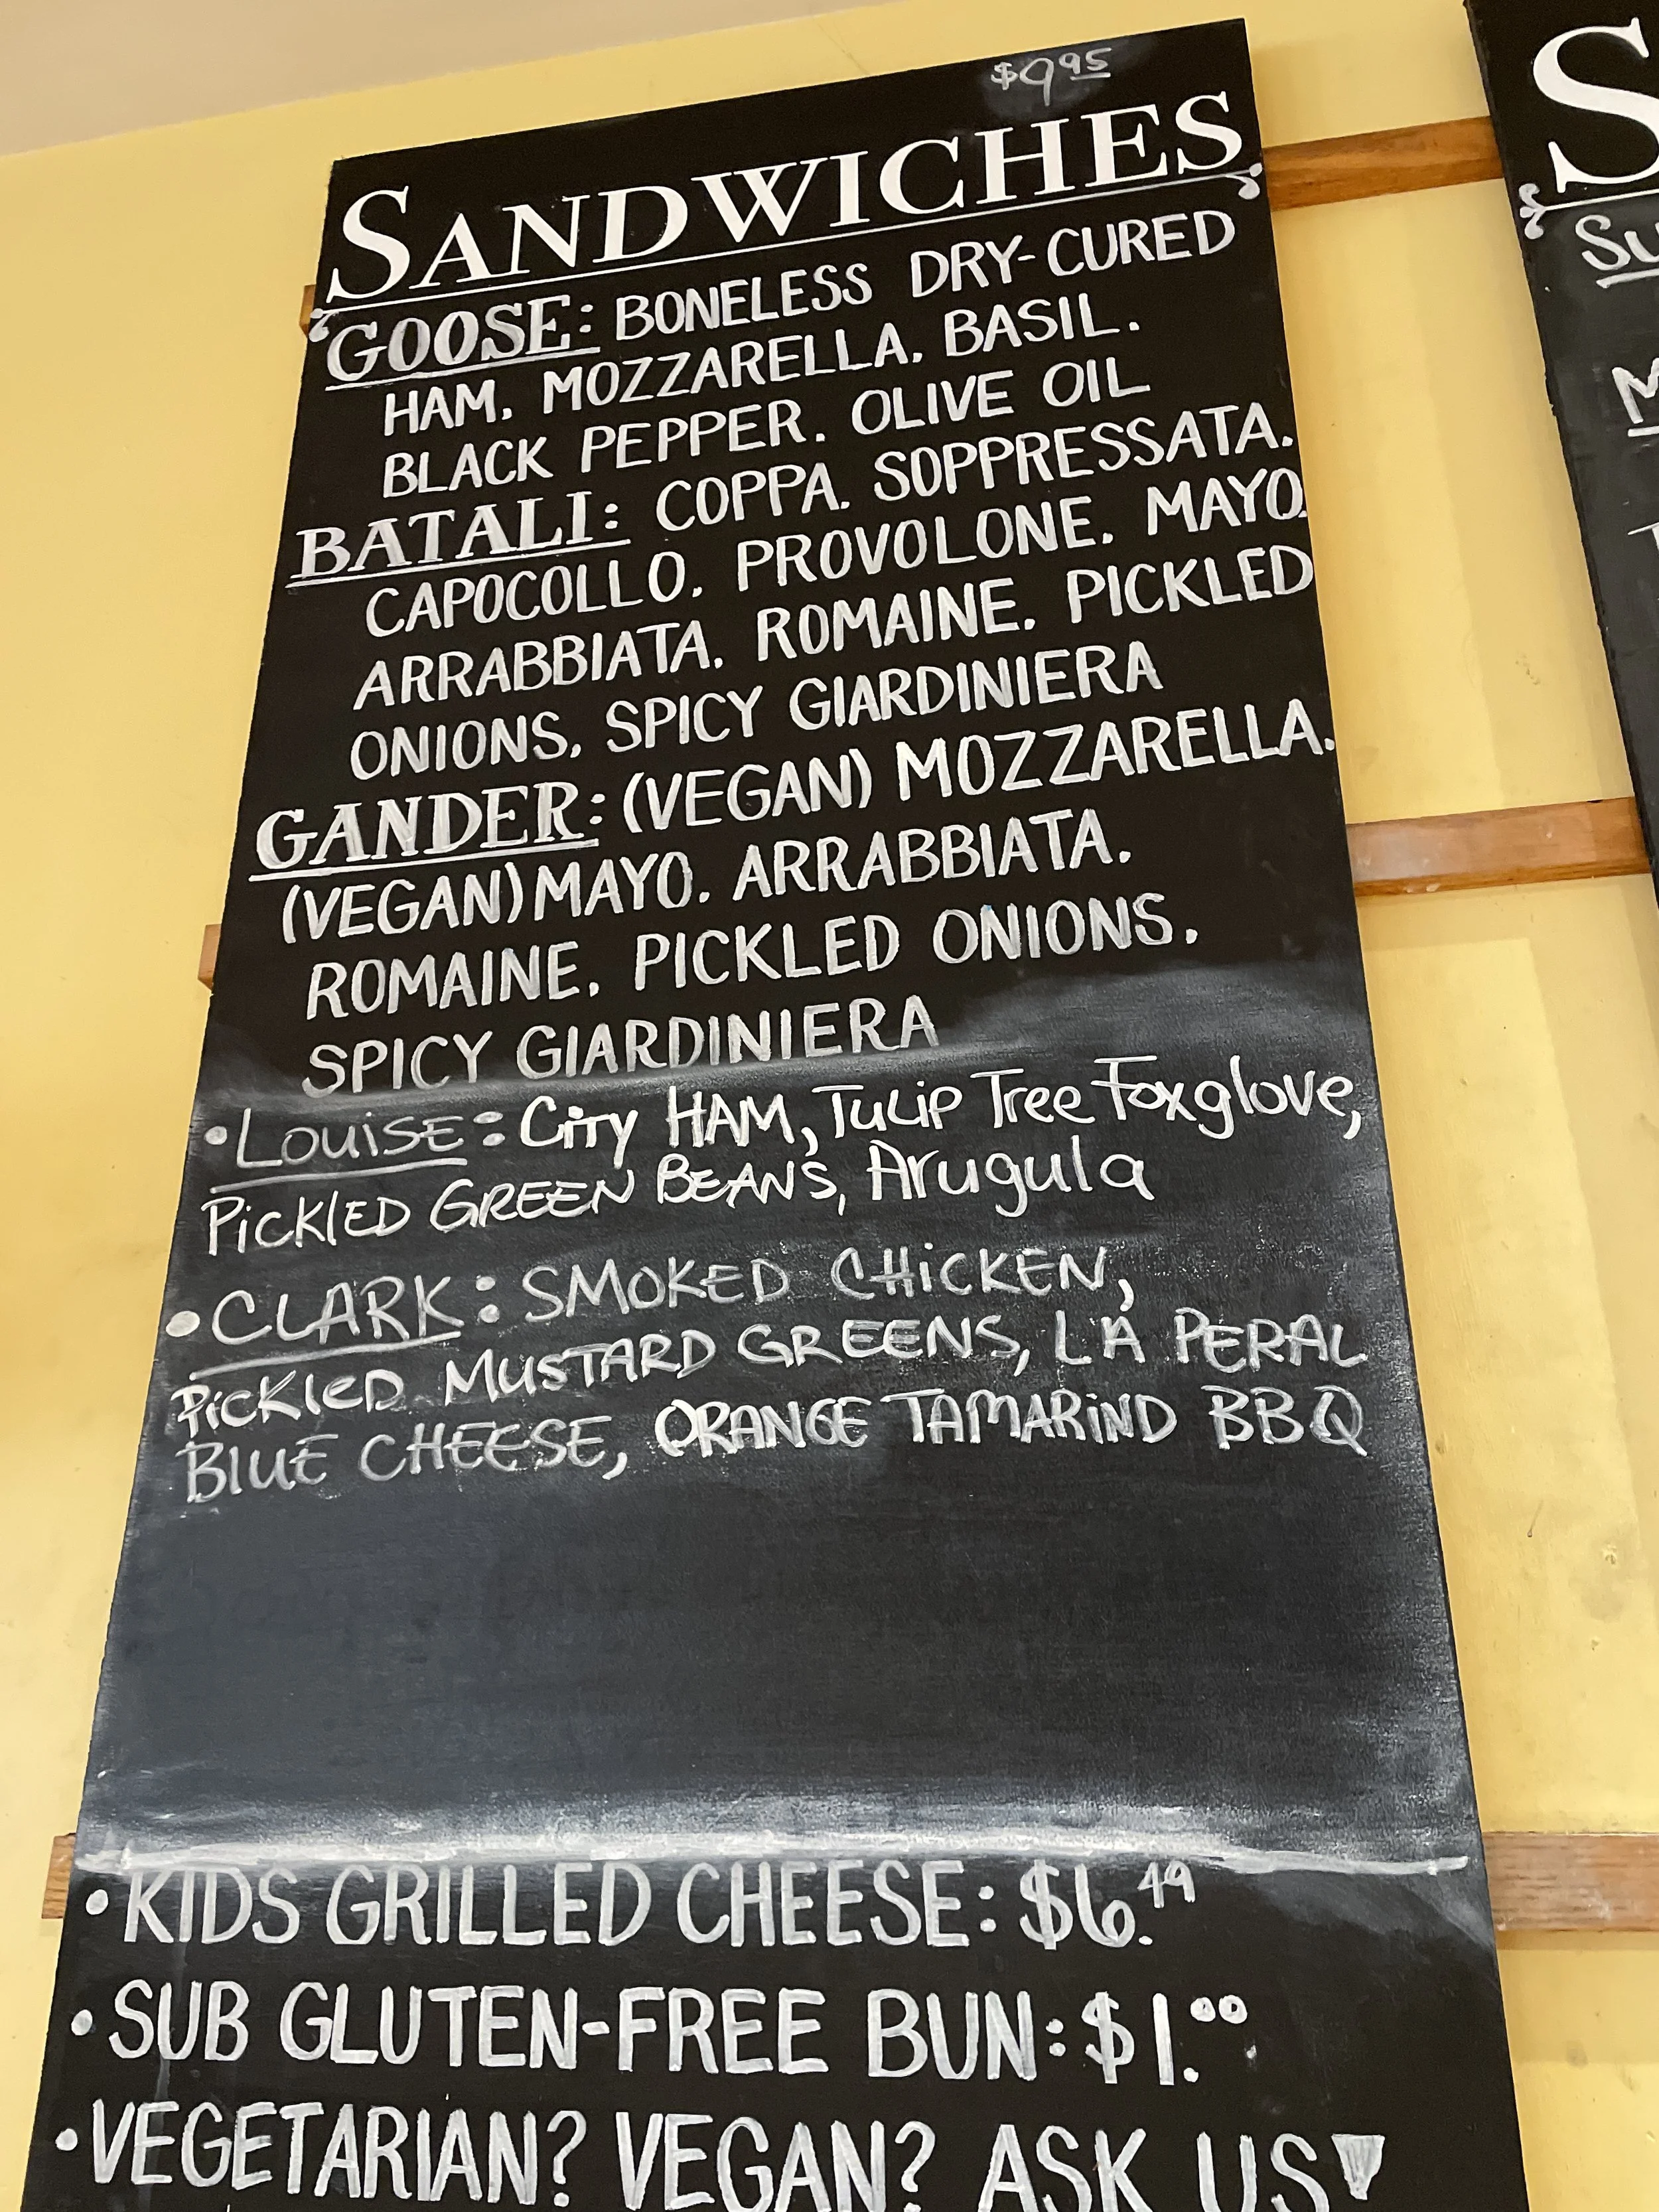 $9.95
SANDWICHES
GOOSE: BONELESS DRY-CURED
HAM. MOZZARELLA. BASIL.
BLACK PEPPER. OLIVE OIL
BATALI: COPPA. SOPPRESSATA.
CAPOCOLLO. PROVOLONE. MAYO.
ARRABBIATA. ROMAINE. PICKLED
ONIONS. SPICY GIARDINIERA
GANDER: (VEGAN) MOZZARELLA.
(VEGAN) MAYO. ARRABBIATA.
ROMAINE. PICKLED ONIONS.
SPICY GIARDINIERA
•LOUISE: CITY HAM, TULIP TREE FOXGLOVE,
PICKLED GREEN BEANS, Arugula
•CLARK: SMOKED CHICKEN,
PICKLED MUSTARD GREENS, LA PERAL
BLUE CHEESE, ORANGE TAMARIND BBQ
•KIDS GRILLED CHEESE: $6.49
•SUB GLUTEN-FREE BUN: $1.00
•VEGETARIAN? VEGAN? ASK US!
S
SU
M